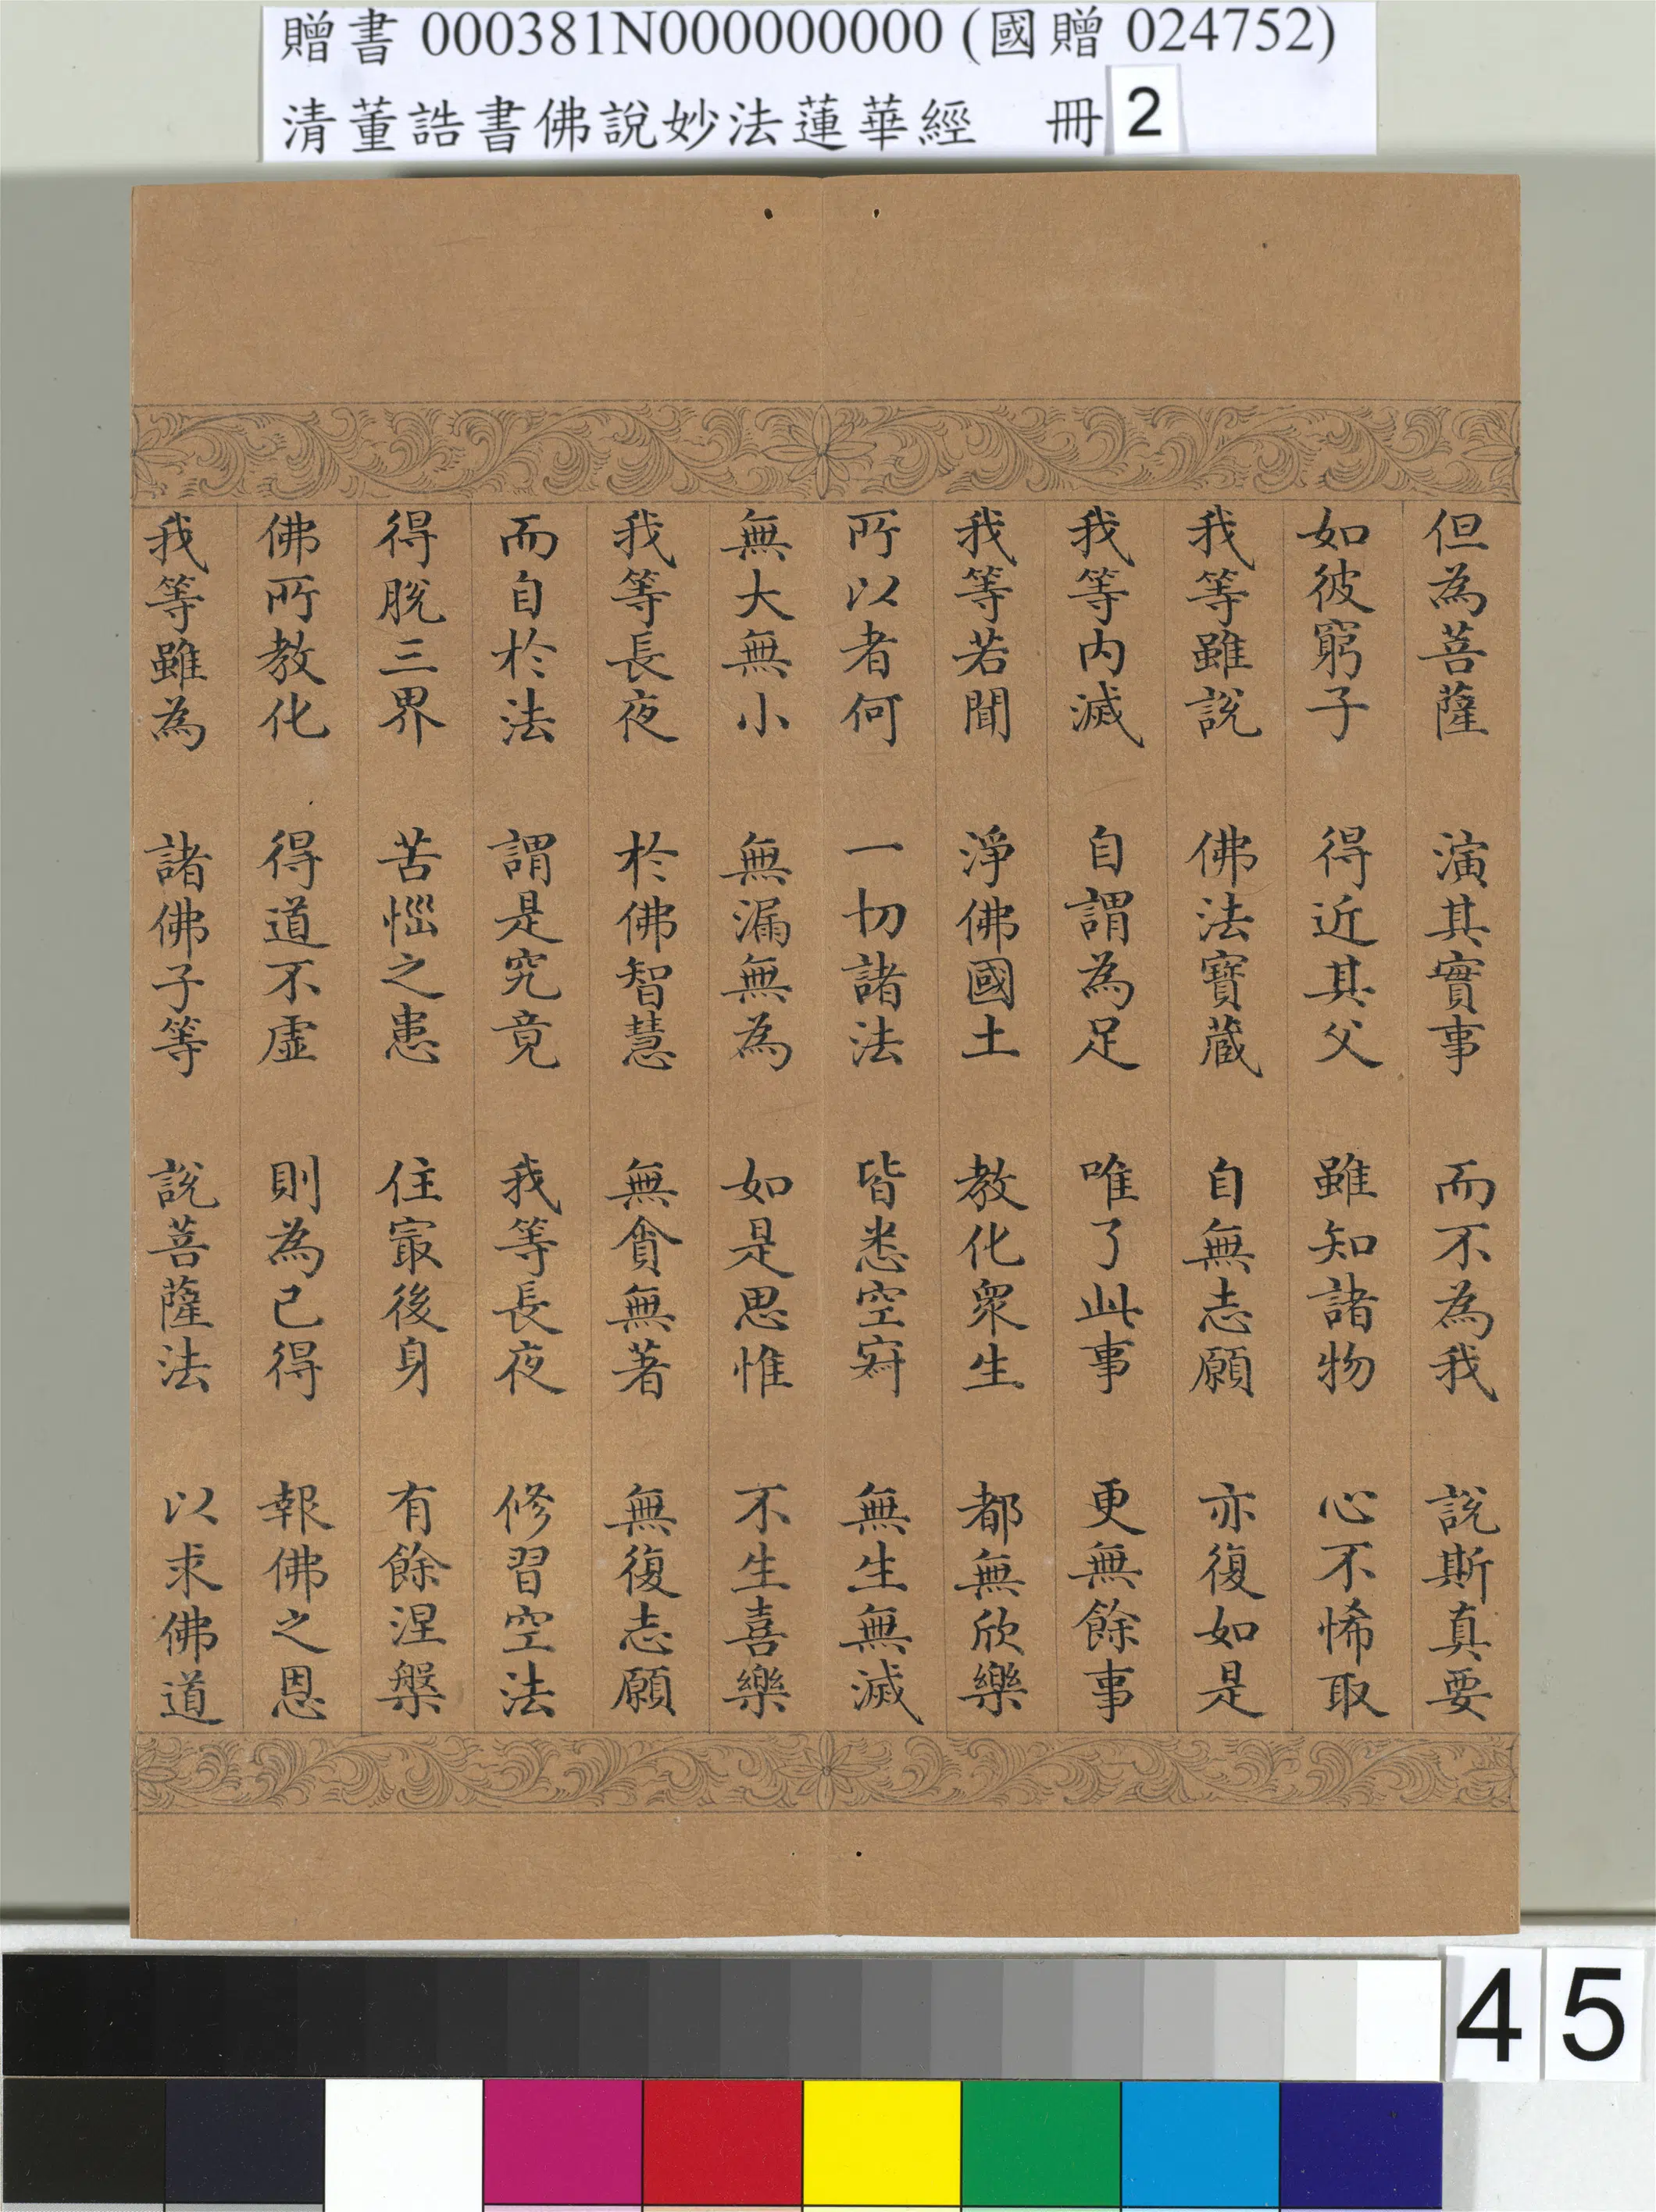 贈書 000381N000000000 (國贈 024752)
清董誥書佛說妙法蓮華經 冊 2
但為菩薩 演其實事 而不為我 說斯真要
如彼窮子 得近其父 雖知諸物 心不悕取
我等雖說 佛法寶藏 自無志願 亦復如是
我等內滅 自謂為足 唯了此事 更無餘事
我等若聞 淨佛國土 教化眾生 都無欣樂
所以者何 一切諸法 皆悉空寂 無生無滅
無大無小 無漏無為 如是思惟 不生喜樂
我等長夜 於佛智慧 無貪無著 無復志願
而自於法 謂是究竟 我等長夜 修習空法
得脫三界 苦惱之患 住最後身 有餘涅槃
佛所教化 得道不虛 則為已得 報佛之恩
我等雖為 諸佛子等 說菩薩法 以求佛道
45